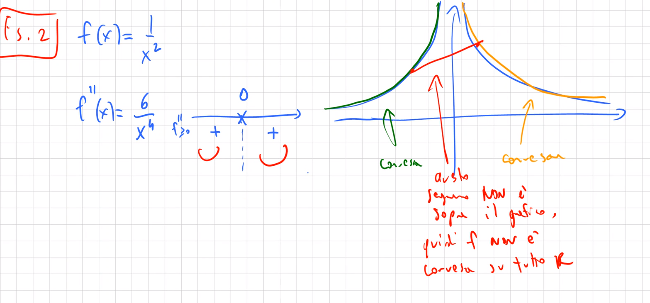 Es. 2
f(x) = 1/x²
f''(x) = 6/x⁴
f''≥0
0
x
+ +
convessa
convessa
questo
segmento NON è
sopra il grafico,
quindi f NON è
convessa su tutto R